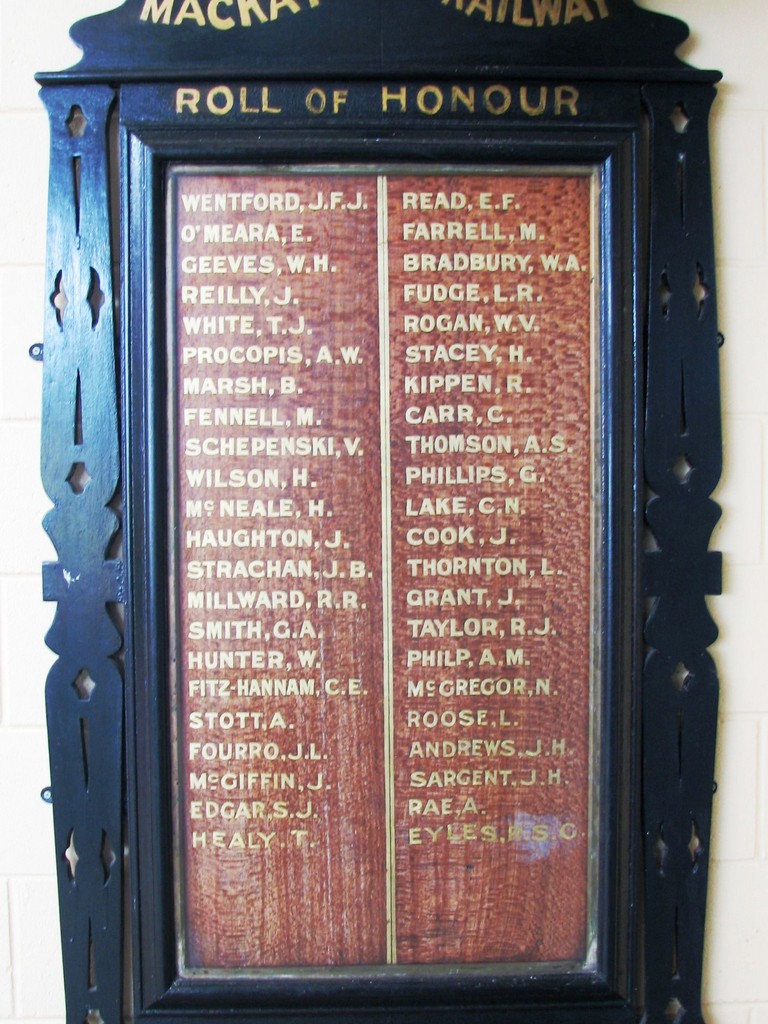 MACKAY RAILWAY
ROLL OF HONOUR
WENTFORD, J.F.J.
O'MEARA, E.
GEEVES, W.H.
REILLY, J.
WHITE, T.J.
PROCOPIS, A.W.
MARSH, B.
FENNELL, M.
SCHEPENSKI, V.
WILSON, H.
McNEALE, H.
HAUGHTON, J.
STRACHAN, J.B.
MILLWARD, R.R.
SMITH, G.A.
HUNTER, W.
FITZ-HANNAM, C.E.
STOTT, A.
FOURRO, J.L.
McGIFFIN, J.
EDGAR, S.J.
HEALY, T.
READ, E.F.
FARRELL, M.
BRADBURY, W.A.
FUDGE, L.R.
ROGAN, W.V.
STACEY, H.
KIPPEN, R.
CARR, C.
THOMSON, A.S.
PHILLIPS, G.
LAKE, C.N.
COOK, J.
THORNTON, L.
GRANT, J.
TAYLOR, R.J.
PHILP, A.M.
McGREGOR, N.
ROOSE, L.
ANDREWS, J.H.
SARGENT, J.H.
RAE, A.
EYLES,